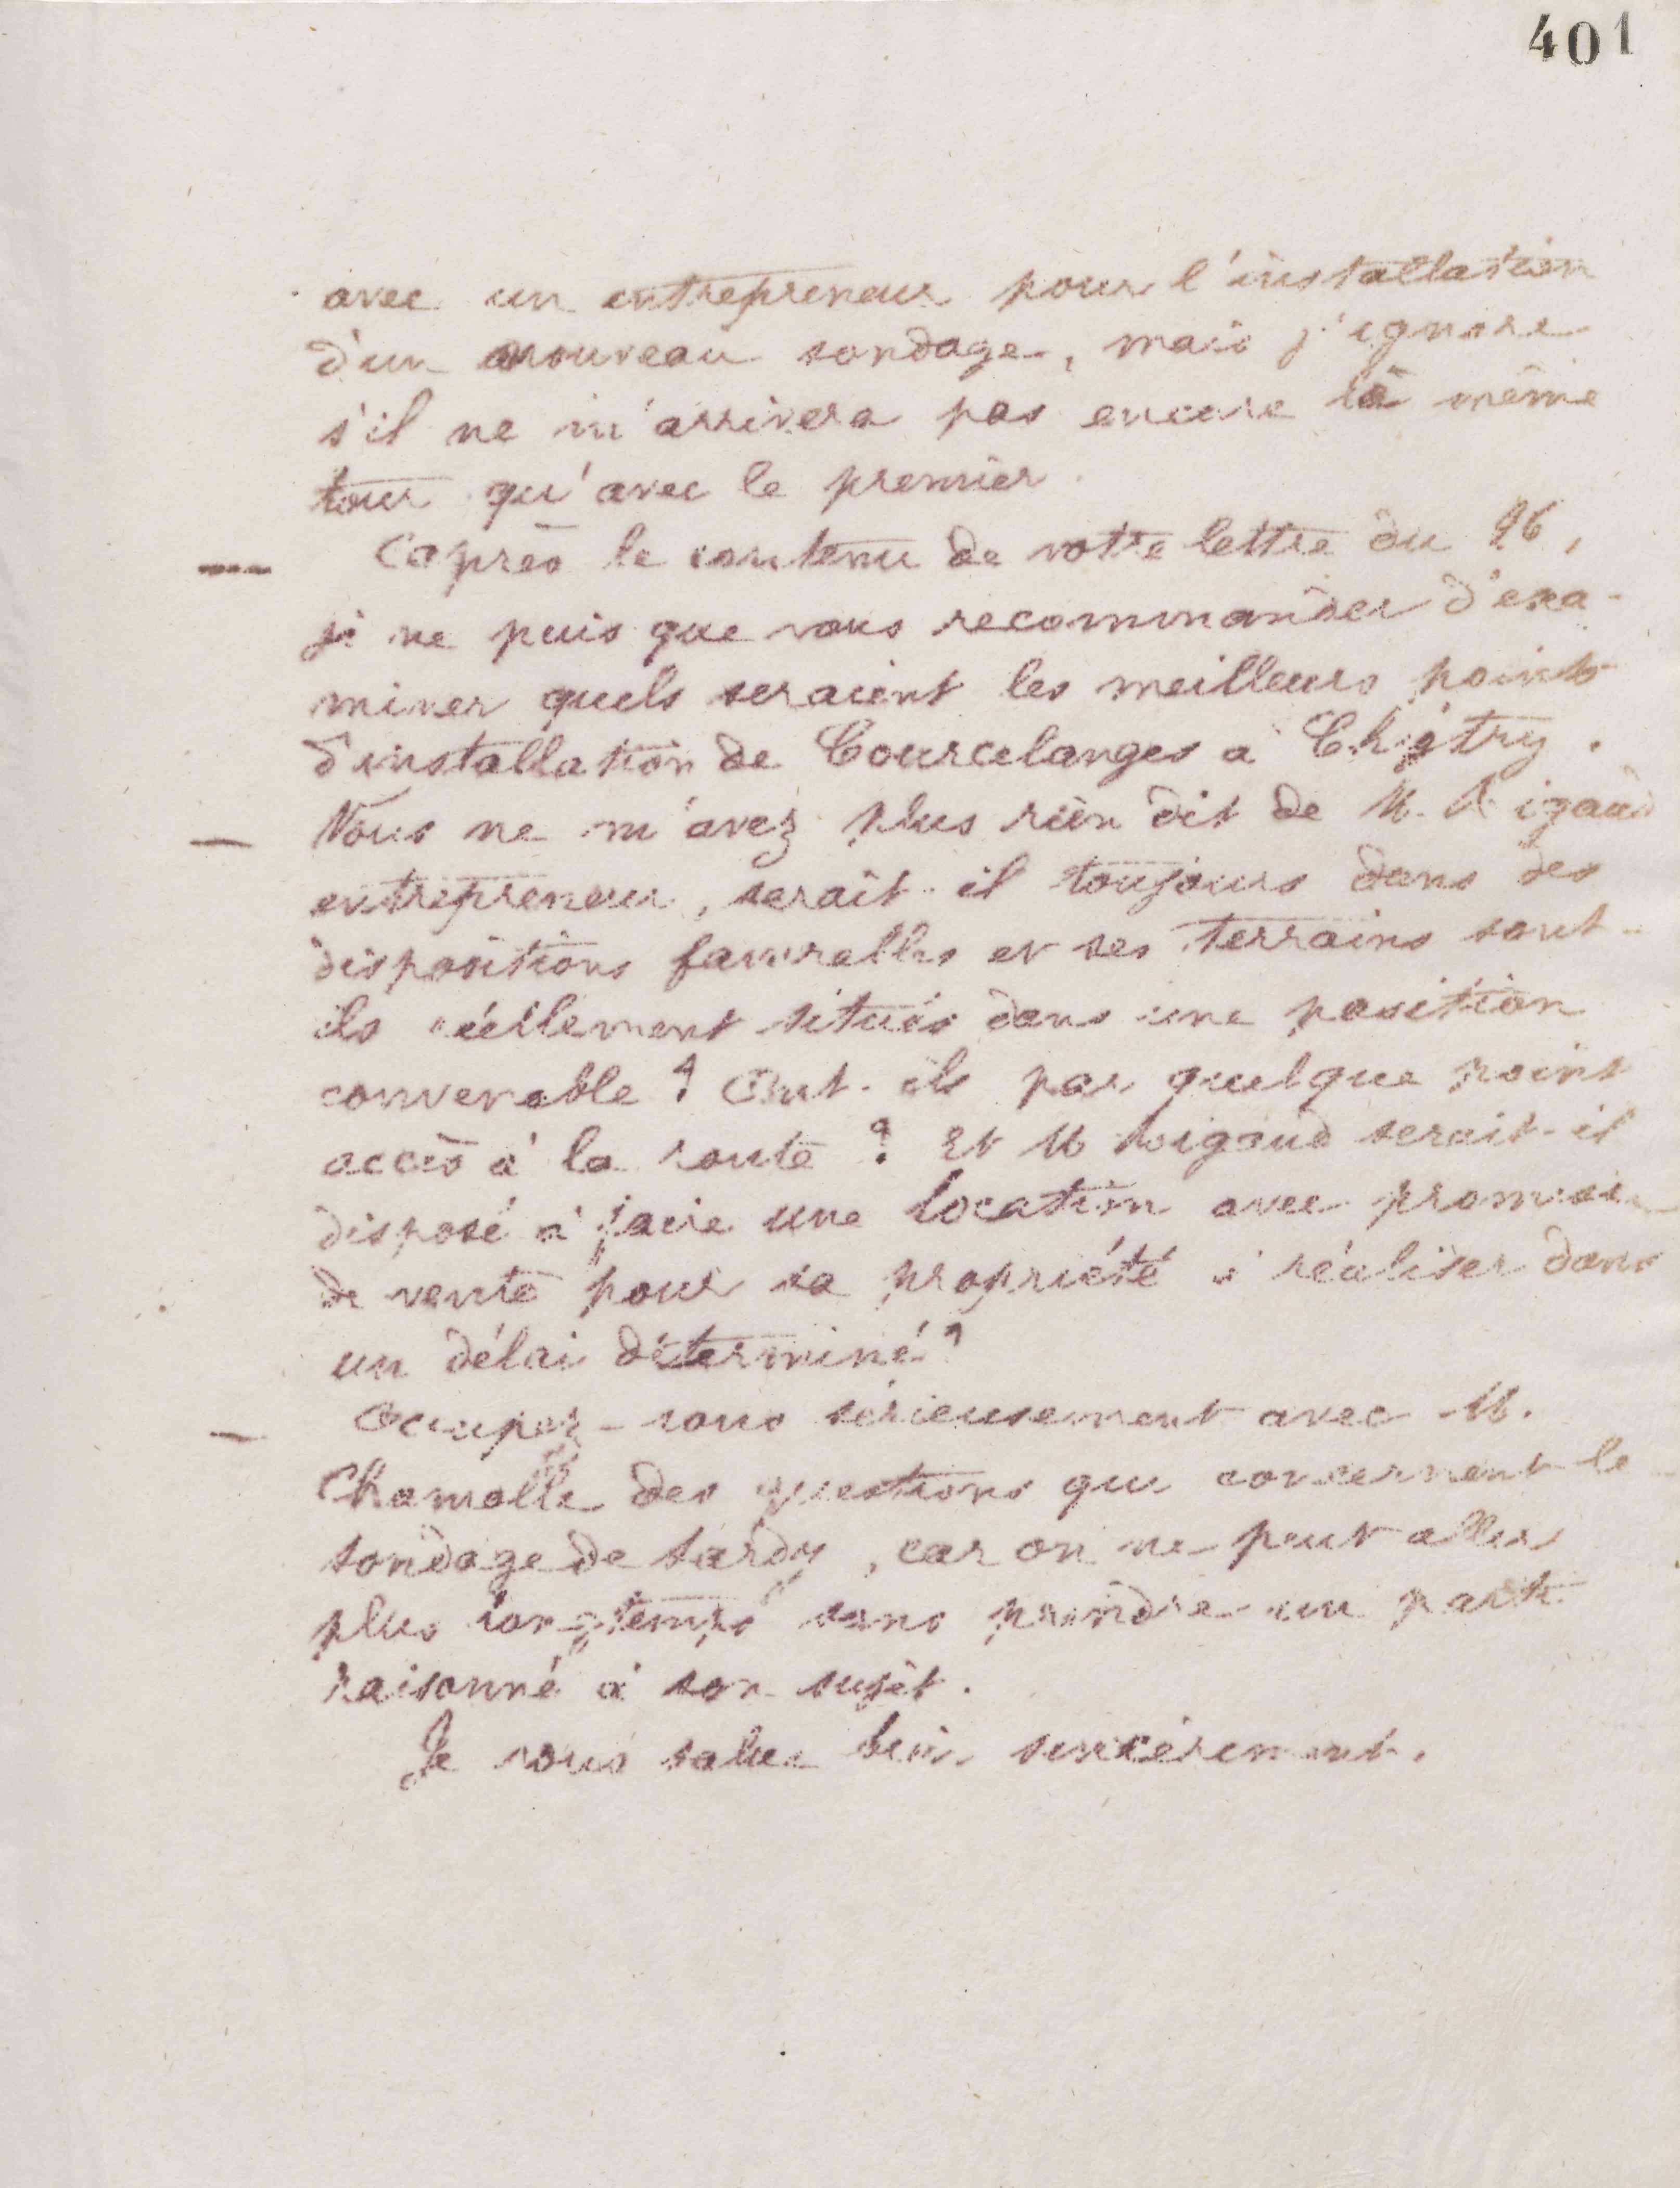 401
avec un entrepreneur pour l'installation
d'un nouveau sondage, mais j'ignore
s'il ne m'arrivera pas encore le même
tour qu'avec le premier.
— D'après le contenu de votre lettre du 26,
je ne puis que vous recommander d'exa-
miner quels seraient les meilleurs points
d'installation de Courcelanges à Chitry.
— Vous ne m'avez plus rien dit de M. Rigaud
entrepreneur, serait-il toujours dans des
dispositions favorables et ses terrains sont-
ils réellement situés dans une position
convenable ? Ont-ils par quelque point
accès à la route ? Et M Rigaud serait-il
disposé à faire une location avec promesse
de vente pour sa propriété à réaliser dans
un délai déterminé ?
— Occupez-vous sérieusement avec M.
Chamolle des questions qui concernent le
sondage de Sardy, car on ne peut aller
plus longtemps sans prendre un parti
raisonné à son sujet.
Je vous salue bien sincèrement.